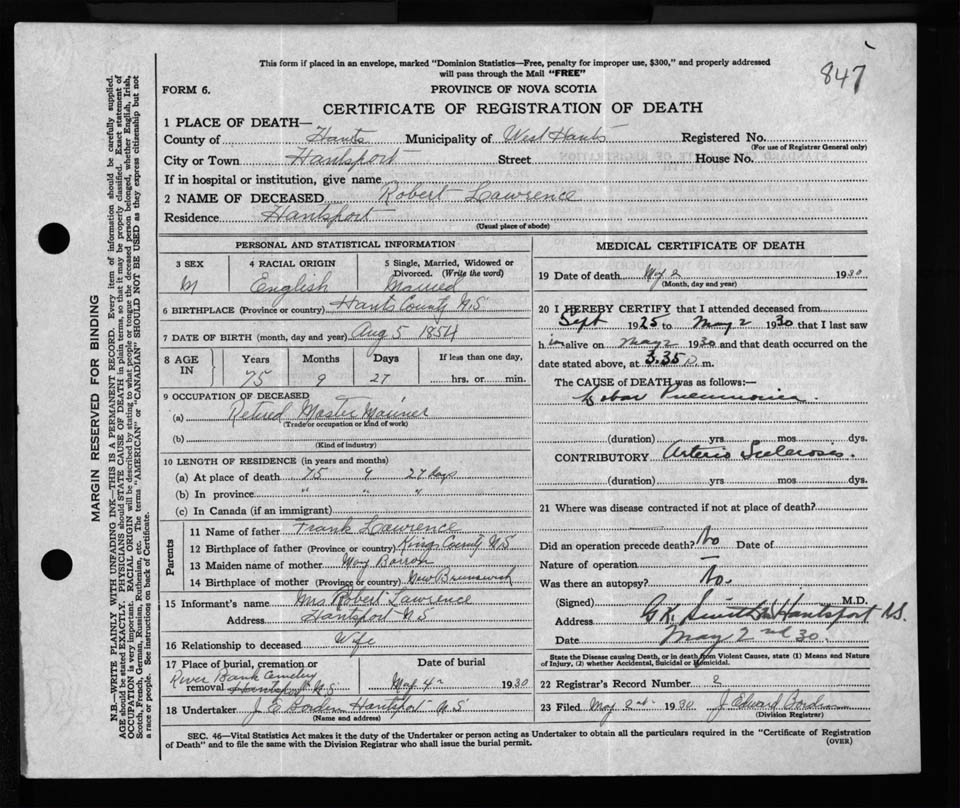 847
This form if placed in an envelope, marked "Dominion Statistics—Free, penalty for improper use, $300," and properly addressed
will pass through the Mail "FREE"
FORM 6.
PROVINCE OF NOVA SCOTIA
CERTIFICATE OF REGISTRATION OF DEATH
1 PLACE OF DEATH—
County of Hants Municipality of West Hants Registered No.
(For use of Registrar General only)
City or Town Hantsport Street House No.
If in hospital or institution, give name
2 NAME OF DECEASED Robert Lawrence
Residence Hantsport
(Usual place of abode)
PERSONAL AND STATISTICAL INFORMATION
3 SEX 4 RACIAL ORIGIN 5 Single, Married, Widowed or Divorced. (Write the word)
M English Married
6 BIRTHPLACE (Province or country) Hants County N.S
7 DATE OF BIRTH (month, day and year) Aug 5 1854
8 AGE IN Years Months Days If less than one day,
75 9 27 hrs. or min.
9 OCCUPATION OF DECEASED
(a) Retired Master Mariner
(Trade or occupation or kind of work)
(b)
(Kind of industry)
10 LENGTH OF RESIDENCE (in years and months)
(a) At place of death 75 9 27 days
(b) In province " " "
(c) In Canada (if an immigrant)
Parents
11 Name of father Frank Lawrence
12 Birthplace of father (Province or country) Kings County N.S
13 Maiden name of mother Mary Barron
14 Birthplace of mother (Province or country) New Brunswick
15 Informant's name Mrs Robert Lawrence
Address Hantsport N S
16 Relationship to deceased Wife
17 Place of burial, cremation or removal Date of burial
River Bank Cemetery
Hantsport N S May 4th 1930
18 Undertaker J. E Borden Hantsport N S
(Name and address)
MEDICAL CERTIFICATE OF DEATH
19 Date of death May 2 1930
(Month, day and year)
20 I HEREBY CERTIFY that I attended deceased from
Sept 1925 to May 2 1930 that I last saw
him alive on May 2 1930 and that death occurred on the
date stated above, at 3.35 p. m.
The CAUSE of DEATH was as follows:—
Lobar Pneumonia
(duration) yrs. mos. dys.
CONTRIBUTORY Arterio Sclerosis.
(duration) yrs. mos. dys.
21 Where was disease contracted if not at place of death?
Did an operation precede death? No Date of
Nature of operation —
Was there an autopsy? No.
(Signed) M.D.
Address G.K. Smith Hantsport N.S.
Date May 2nd 30.
State the Disease causing Death, or in death from Violent Causes, state (1) Means and Nature
of Injury, (2) whether Accidental, Suicidal or Homicidal.
22 Registrar's Record Number 2
23 Filed May 2nd 1930 J Edward Borden
(Division Registrar)
SEC. 46—Vital Statistics Act makes it the duty of the Undertaker or person acting as Undertaker to obtain all the particulars required in the "Certificate of Registration
of Death" and to file the same with the Division Registrar who shall issue the burial permit.
(OVER)
MARGIN RESERVED FOR BINDING
N.B.—WRITE PLAINLY WITH UNFADING INK—THIS IS A PERMANENT RECORD. Every item of information should be carefully supplied.
AGE should be stated EXACTLY. PHYSICIANS should STATE CAUSE OF DEATH in plain terms, so that it may be properly classified. Exact statement of
OCCUPATION is very important. RACIAL ORIGIN will be described by stating to what people or tongue the deceased person belonged, whether English, Irish,
Scotch, French, German, Russian, Ruthenian, etc. The terms "AMERICAN" or "CANADIAN" SHOULD NOT BE USED as they express citizenship but not
a race or people. See instructions on back of Certificate.